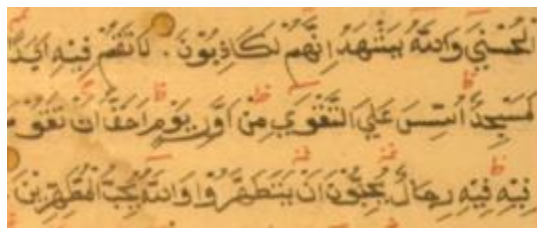 الْحُسْنَي وَاللّٰهُ يَشْهَدُ اِنَّهُمْ لَكَاذِبُوْنَ . لَا تَقُمْ فِيْهِ اَبَدًا
لَمَسْجِدٌ اُسِّسَ عَلَي التَّقْوَي مِنْ اَوَّلِ يَوْمٍ اَحَقُّ اَنْ تَقُوْمَ
فِيْهِ فِيْهِ رِجَالٌ يُحِبُّوْنَ اَنْ يَتَطَهَّرُوْا وَاللّٰهُ يُحِبُّ الْمُطَّهِّرِيْنَ